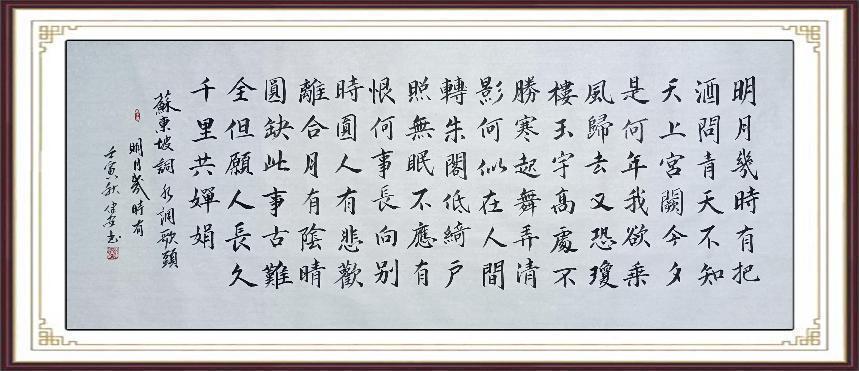 明月幾時有把
酒問青天不知
天上宮闕今夕
是何年我欲乘
風歸去又恐瓊
樓玉宇高處不
勝寒起舞弄清
影何似在人間
轉朱閣低綺戶
照無眠不應有
恨何事長向别
時圓人有悲歡
離合月有陰晴
圓缺此事古難
全但願人長久
千里共嬋娟
蘇東坡詞水調歌頭
明月幾時有
壬寅秋